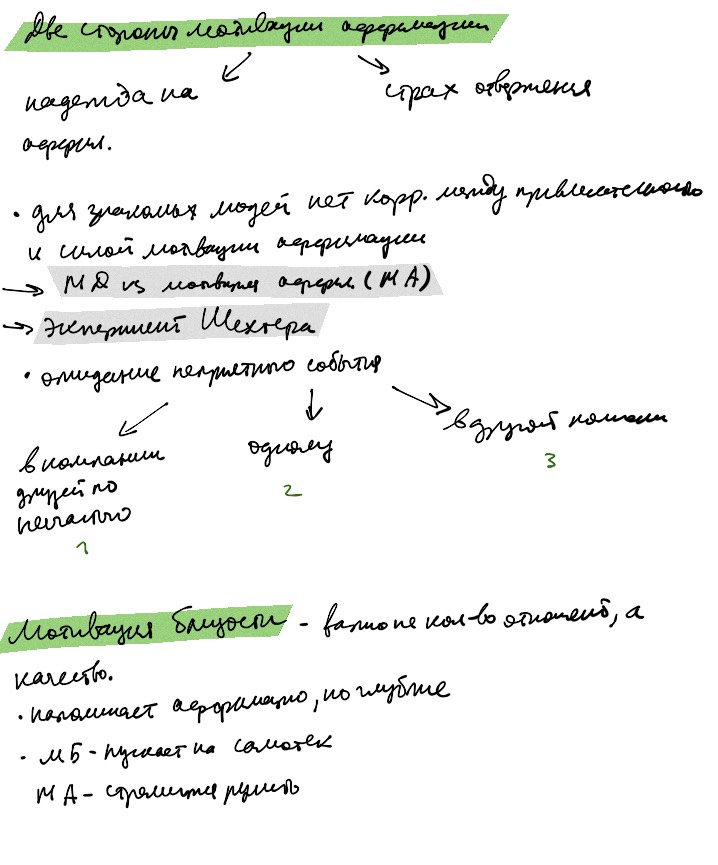 Две стороны мотивации аффилиации
надежда на
аффил.
страх отвержения
• для знакомых людей нет корр. между привлекательностью
и силой мотивации аффилиации
→ МД vs мотивация аффил. (МА)
→ Эксперимент Шехтера
• ожидание неприятного события
в компании
друзей по
несчастью
1
одному
2
в другой компании
3
Мотивация близости - важно не кол-во отношений, а
качество.
• напоминает аффилиацию, но глубже
• МБ - пускает на самотек
МА - стремится рулить